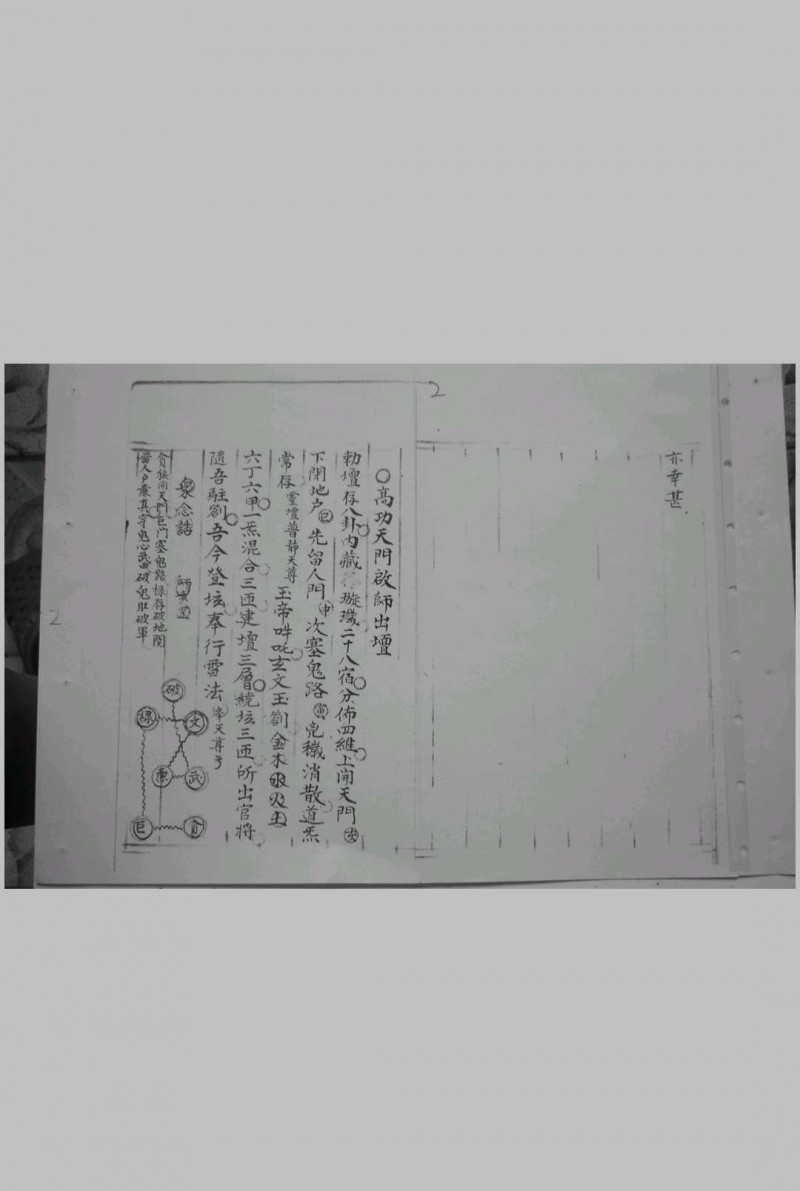 2
亦幸甚
○高功天門啟師出壇
勅壇存八卦內藏 璇璣二十八宿分佈四維上開天門
下閉地户 先留人門 申 次塞鬼路 寅 兇穢消散道炁
常存 靈壇普靜天尊 玉帝吽吒玄文玉劄金木水火土
六丁六甲一炁混合三匝建壇三層繞坛三匝所出官將
隨吾駐劄吾今登坛奉行雷法
衆念誥
貪狼開天門巨門塞鬼路祿存破地関
破
祿
文
廉
武
巨
貪
2